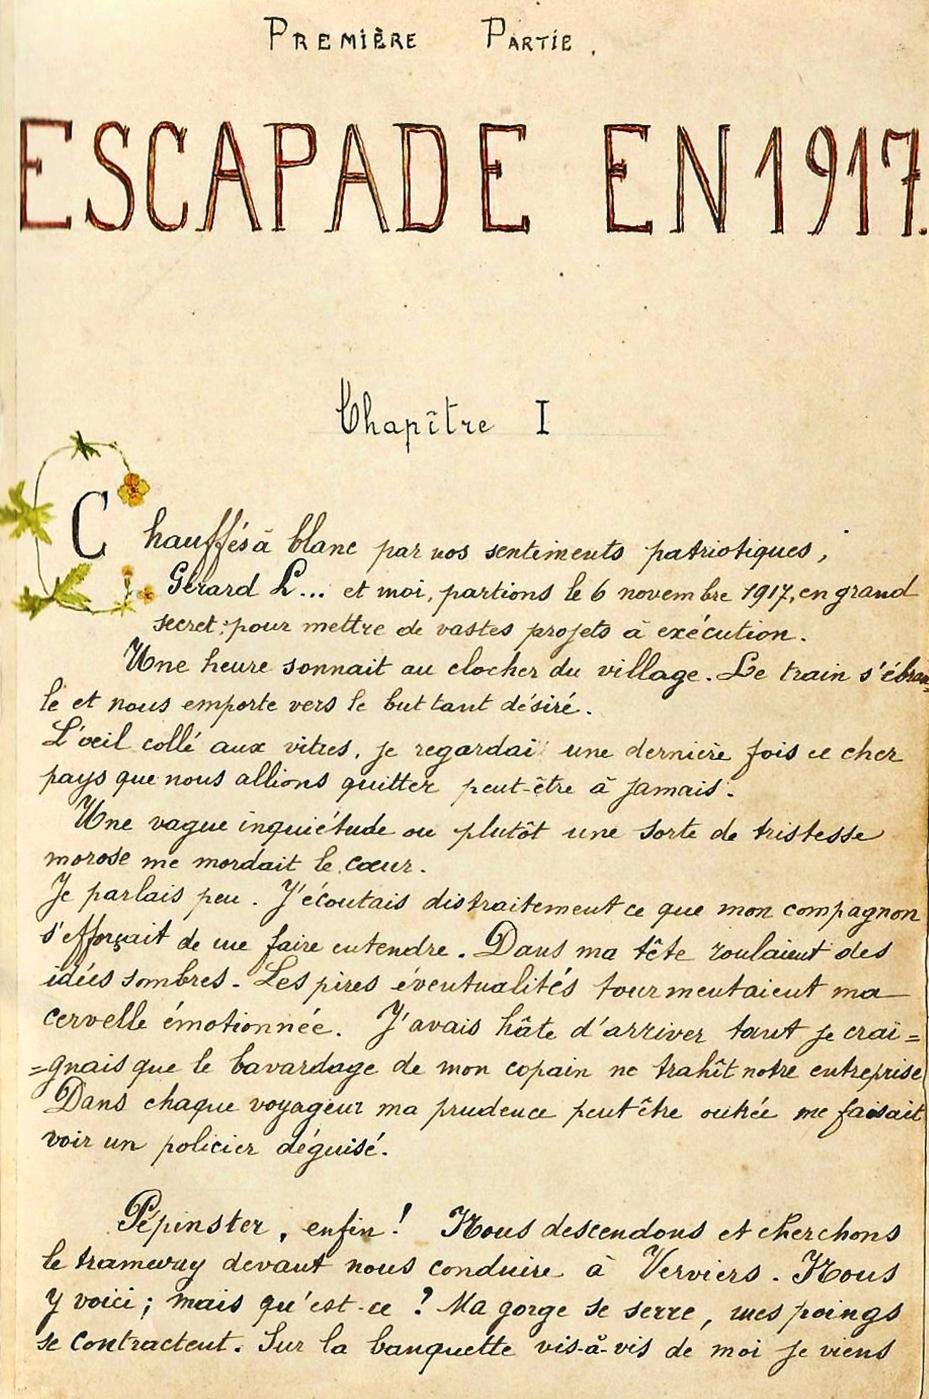 PREMIÈRE PARTIE.
ESCAPADE EN 1917.
Chapître I
Chauffés à blanc par nos sentiments patriotiques,
Gérard L... et moi, partions le 6 novembre 1917, en grand
secret, pour mettre de vastes projets à exécution.
Une heure sonnait au clocher du village. Le train s'ébran=
le et nous emporte vers le but tant désiré.
L'œil collé aux vitres, je regardai une dernière fois ce cher
pays que nous allions quitter peut-être à jamais.
Une vague inquiétude ou plutôt une sorte de tristesse
morose me mordait le cœur.
Je parlais peu. J'écoutais distraitement ce que mon compagnon
s'efforçait de me faire entendre. Dans ma tête roulaient des
idées sombres. Les pires éventualités tourmentaient ma
cervelle émotionnée. J'avais hâte d'arriver tant je crai=
=gnais que le bavardage de mon copain ne trahît notre entreprise
Dans chaque voyageur ma prudence peut être outrée me faisait
voir un policier déguisé.
Pépinster, enfin! Nous descendons et cherchons
le tramway devant nous conduire à Verviers. Nous
y voici; mais qu'est-ce? Ma gorge se serre, mes poings
se contractent. Sur la banquette vis-à-vis de moi je viens